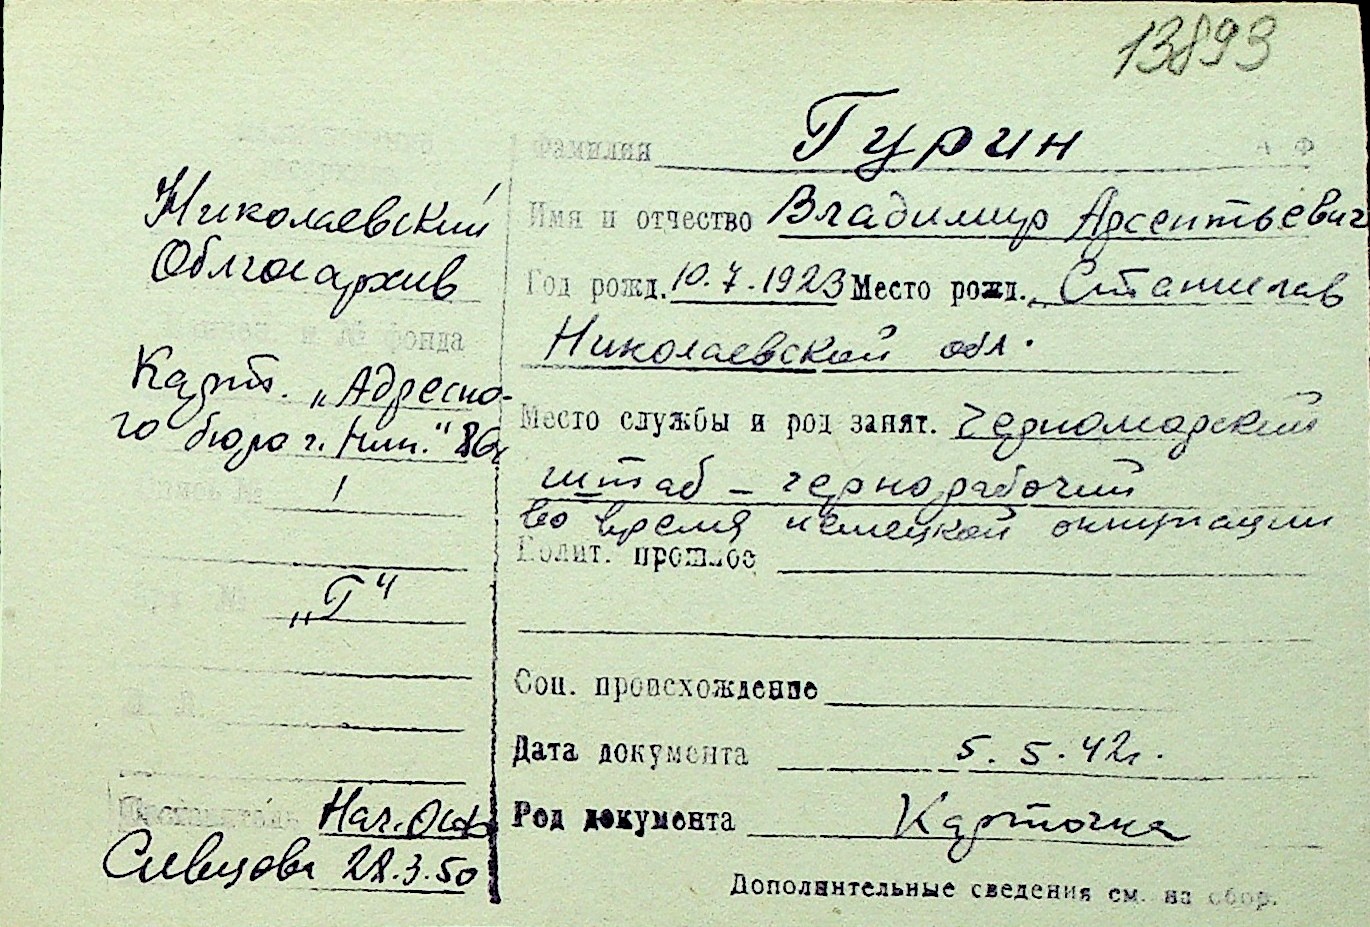 13893
Фамилия Гурин
Имя и отчество Владимир Арсентьевич
Год рожд. 10.7.1923 Место рожд. Станислав
Николаевской обл.
Место службы и род занят. Черноморский
штаб - чернорабочий
во время немецкой оккупации
Полит. прошлое
Соц. происхождение
Дата документа 5.5.42г.
Род документа Карточка
Дополнительные сведения см. на обор.
Николаевский
Облгосархив
и № фонда
Карт. „Адресно-
го бюро г. Ник."
Опись № 1
„Г"
Составитель Нач.
Сивцова 22.3.50